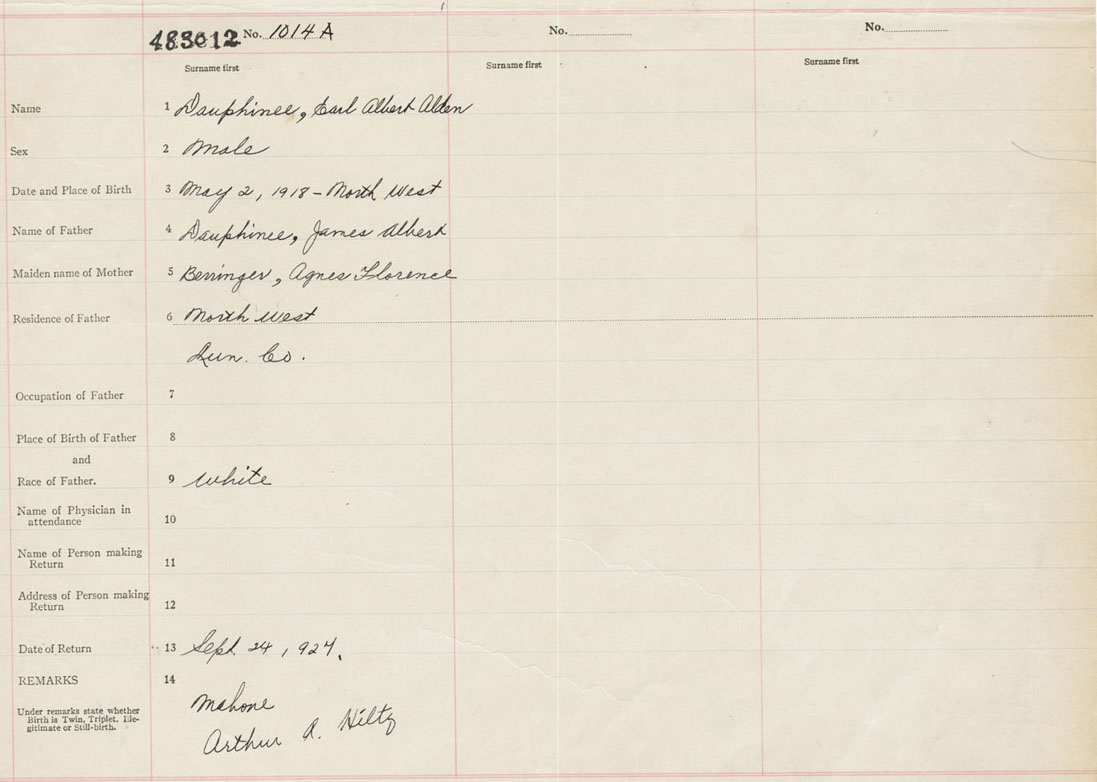 483012 No. 1014 A No. No.
Surname first Surname first Surname first
Name 1 Dauphinee, Earl Albert Alden
Sex 2 Male
Date and Place of Birth 3 May 2, 1918 - North West
Name of Father 4 Dauphinee, James Albert
Maiden name of Mother 5 Berringer, Agnes Florence
Residence of Father 6 North West
Lun. Co.
Occupation of Father 7
Place of Birth of Father 8
and
Race of Father. 9 White
Name of Physician in
attendance 10
Name of Person making
Return 11
Address of Person making
Return 12
Date of Return 13 Sept. 24, 1927.
REMARKS 14
Under remarks state whether
Birth is Twin, Triplet, Ille-
gitimate or Still-birth.
Mahone
Arthur R. Hiltz